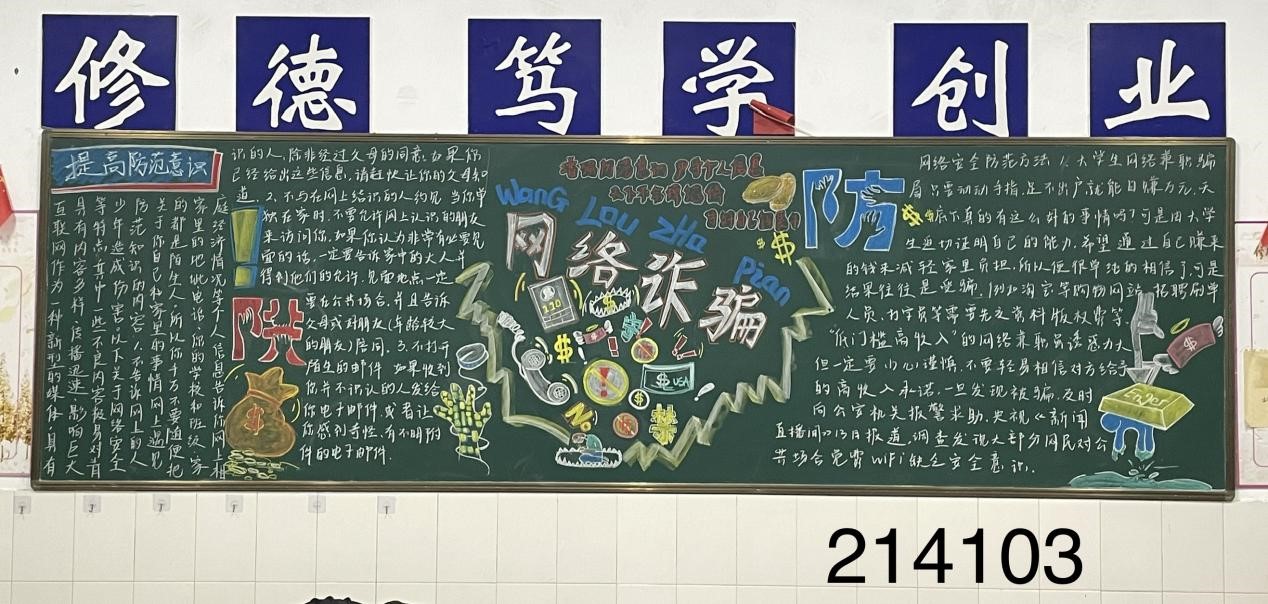 修德笃学创业
提高防范意识
互联网作为一种新型的媒体,具有
具有内容多样,传播迅速,影响巨大
等特点,其中一些不良内容极易对青
少年造成伤害。以下关于网络安全
防范知识的内容:1.不告诉网上的人
关于你自己和家里的事情。网上遇见
的都是陌生人,所以你千万不要随便把
家里的地址、电话、你的学校和班级、家
庭经济情况等个人信息告诉你网上相
识的人,除非经过父母的同意,如果你
已经给出这些信息,请赶快让你的父母知
道。2、不与在网上结识的人约见,当你单
独在家时,不要允许网上认识的朋友
来访问你。如果你认为非常有必要见
面的话,一定要告诉家中的大人并
得到他们的允许,见面地点一定
要在公共场合,并且告诉
父母或对朋友(年龄较大
的朋友)陪同。3.不打开
陌生的邮件,如果收到
你并不识认的人发给
你电子邮件,或者让
你感到奇怪,有不明附
件的电子邮件.
!
陷
$
WanG Lou ZHa Pian
网络诈骗
110
$
USA
$
No
$
禁
防
$
网络安全防范方法 1、大学生网络兼职骗
局 只要动动手指,足不出户就能日赚万元,天
底下真的有这么好的事情吗?可是由大学
生迫切证明自己的能力,希望通过自己赚来
的钱来减轻家里负担,所以便很单纯的相信了,可是
结果往往是受骗,例如淘宝等购物网站,招聘刷单
人员,打字员等需要先交资料版权费等
"低门槛高收入"的网络兼职虽诱惑力大
但一定要小心谨慎,不要轻易相信对方给予
的高收入承诺,一旦发现被骗,及时
向公安机关报警求助。央视《新闻
直播间》13日报道,调查发现大部分网民对公
共场合免费WiFi缺乏安全意识.
214103